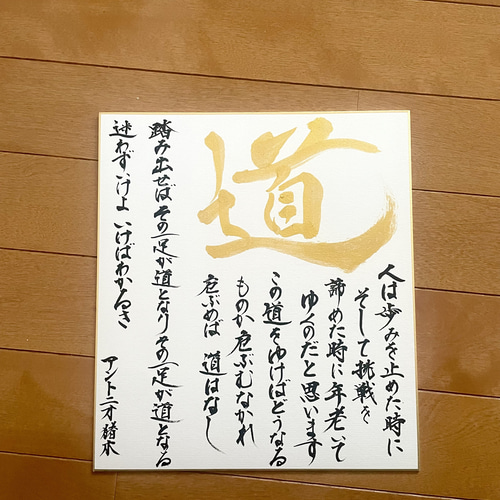 道
人は歩みを止めた時に
そして挑戦を
諦めた時に年老いて
ゆくのだと思います
この道をゆけばどうなる
ものか危ぶむなかれ
危ぶめば 道はなし
踏み出せば その一足が道となり その一足が道となる
迷わずいけよ いけばわかるさ
アントニオ猪木